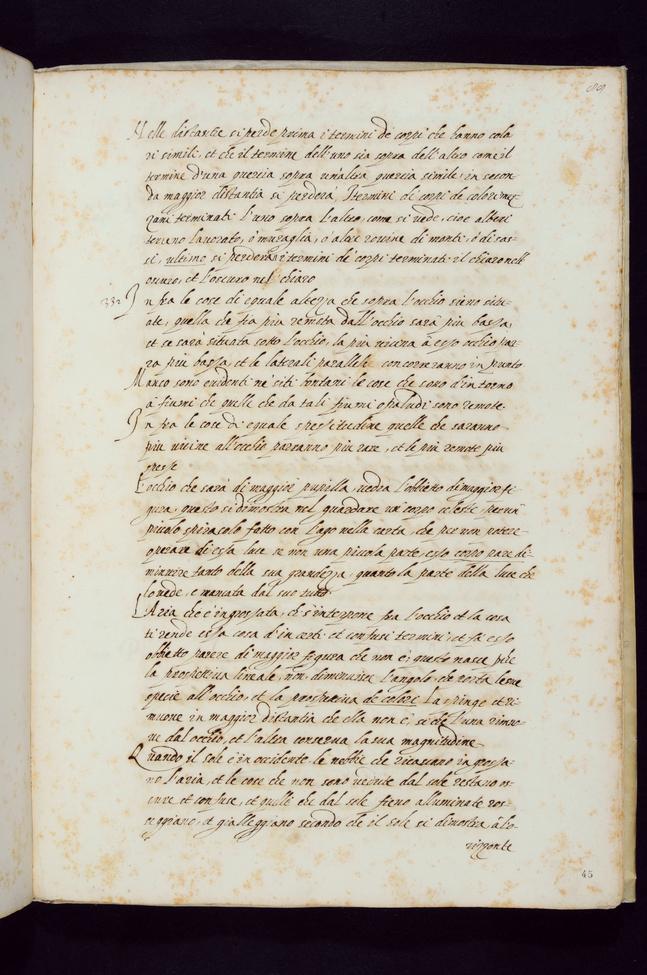 89
Nelle distantie si perde prima i termini de corpi che hanno colo
ri simili, et che il termine dell'uno sia sopra dell'altro come il
termine d'una quercia sopra un'altra quercia simile, in secon
da maggior distantia si perderà I termini di corpi de colori mez
zani terminati l'uno sopra l'altro, come si vede, cioe alberi
terreno lavorato, ò muraglia, ò altre rovine di monti, ò di sas
si, ultimo si perderà i termini de corpi terminati il chiaro nell'
oscuro, et l'oscuro nel chiaro
332 In fra le cose di equale altezza che sopra l'occhio sieno situ-
ate, quella che fia piu remota dall'occhio sarà piu bassa,
et se sarà situata sotto l'occhio, la piu vicina à esso occhio par-
ra piu bassa, et le laterali parallele concorreranno in punto
Manco sono evidenti ne siti lontani le cose che sono d'intorno
à fiumi che quelle che da tali fiumi o paludi sono remote.
In fra le cose di equale spessitudine quelle che saranno
piu vicine all'occhio parranno piu rare, et le piu remote piu
spesse
L'occhio che sarà di maggior pupilla, vedra l'obbietto di maggior fi
gura, questo si dimostra nel guardare un corpo celeste per un
picolo spiracolo fatto con l'ago nella carta, che per non potere
operare di essa luce se non una picola parte, esso corpo pare di-
minuire tanto della sua grandezza, quanto la parte della luce che
lo vede, e mancata dal suo tutto
L'Aria che è ingrossata, ch s'interpone fra l'occhio et la cosa
ti rende essa cosa d'incerti, et confusi termini, et fa esso
obbietto parere di maggior figura che non è; questo nasce perche
la prospettiva lineale, non diminuisce l'angolo, che porta le sue
specie all'occhio, et la prospettiva de colori la spinge et ri
muove in maggior distantia che ella non è, si che l'una rimuo
ve dal occhio, et l'altra conserva la sua magnitudine
Quando il sole è in occidente le nebbie che ricascano ingrossa
no l'aria, et le cose che non sono vedute dal sole restano os-
cure et confuse, et quelle che dal sole fieno alluminate ros-
seggiano, et gialleggiano secondo che il sole si dimostra à l'o
rizzonte
45